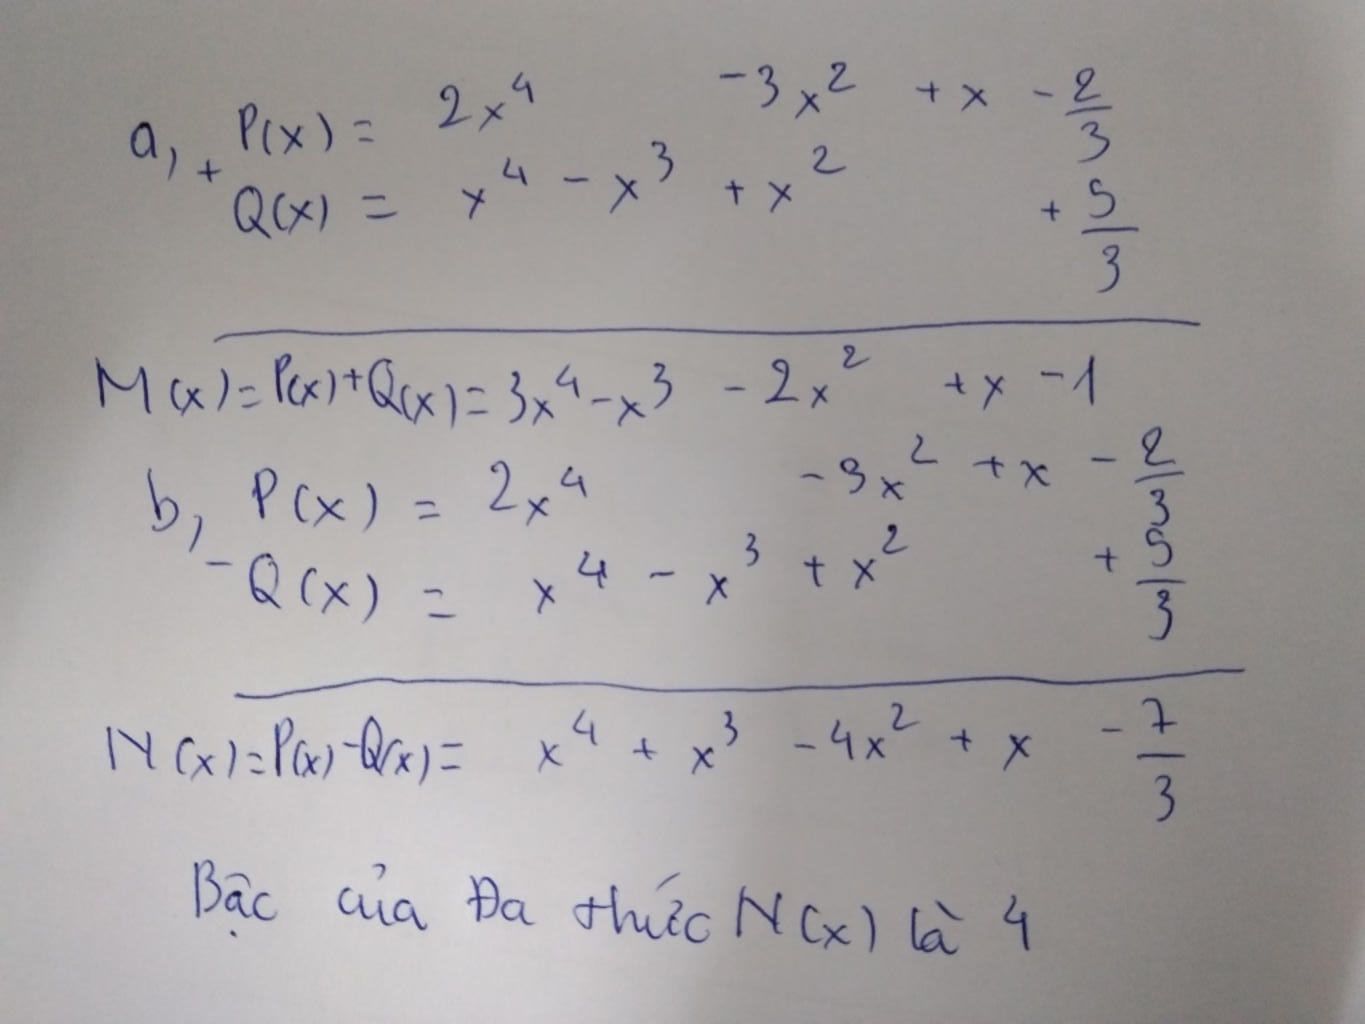 a, P(x) = 2x⁴ -3x² + x - 2/3
+
Q(x) = x⁴ - x³ + x² + 5/3
M(x) = P(x) + Q(x) = 3x⁴ - x³ - 2x² + x - 1
b, P(x) = 2x⁴ - 3x² + x - 2/3
- Q(x) = x⁴ - x³ + x² + 5/3
N(x) = P(x) - Q(x) = x⁴ + x³ - 4x² + x - 7/3
Bậc của Đa thức N(x) là 4